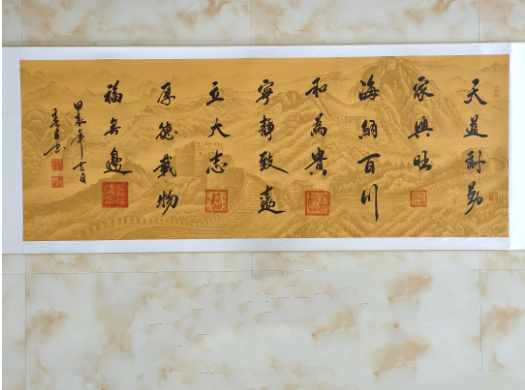 天道酬勤
家興旺
海納百川
和為貴
寧靜致遠
立大志
厚德載物
福無邊
甲辰年